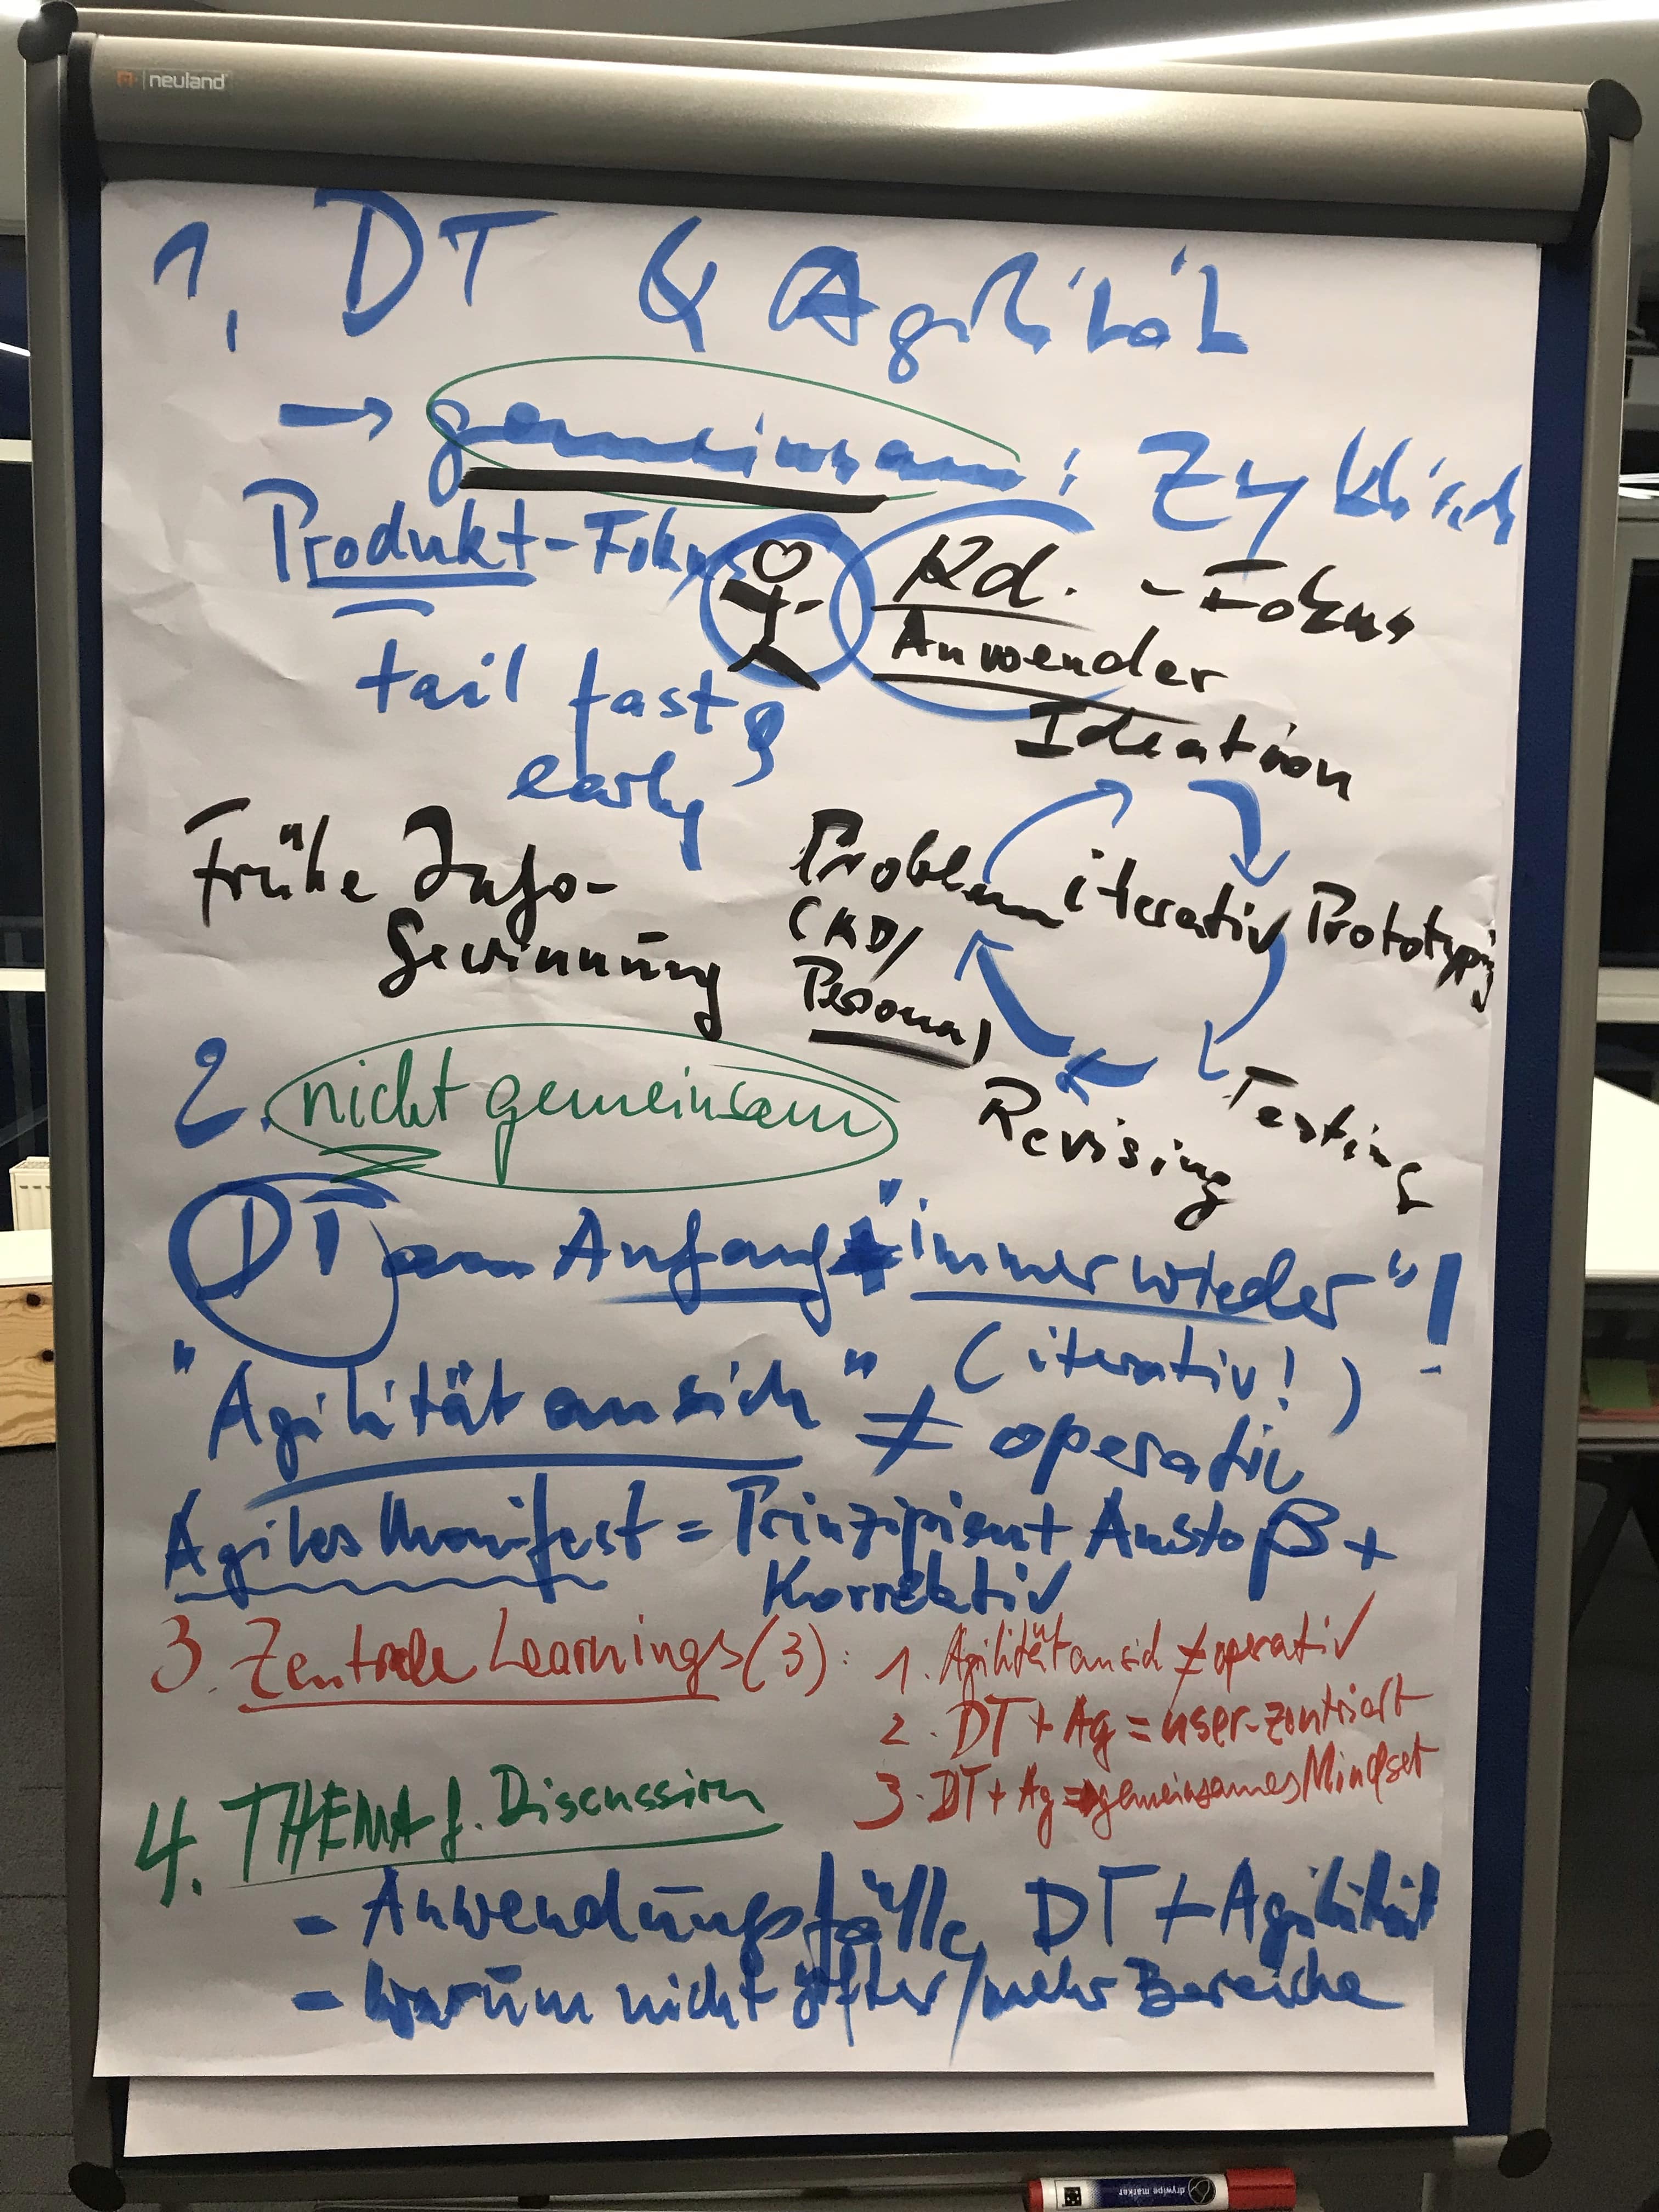 neuland
1. DT & Agilität
→ gemeinsam: Zyklisch
Produkt-Fokus
Kd. - Fokus
Anwender
fail fast &
early
Ideation
Frühe Info-
Gewinnung
Problem
(KD/
Persona)
iterativ
Prototyping
Testing
Revising
2. nicht gemeinsam
DT am Anfang + "immer wieder"!
(iterativ!)
"Agilität an sich" ≠ operativ
Agiles Manifest = Prinzipien + Anstoß +
Korrektiv
3. Zentrale Learnings (3): 1. Agilität an sich ≠ operativ
2. DT + Ag = user-zentriert
3. DT + Ag → gemeinsames Mindset
4. THEMA f. Discussion
- Anwendungsfälle DT + Agilität
- warum nicht öfter/mehr Bereiche
drywipe marker